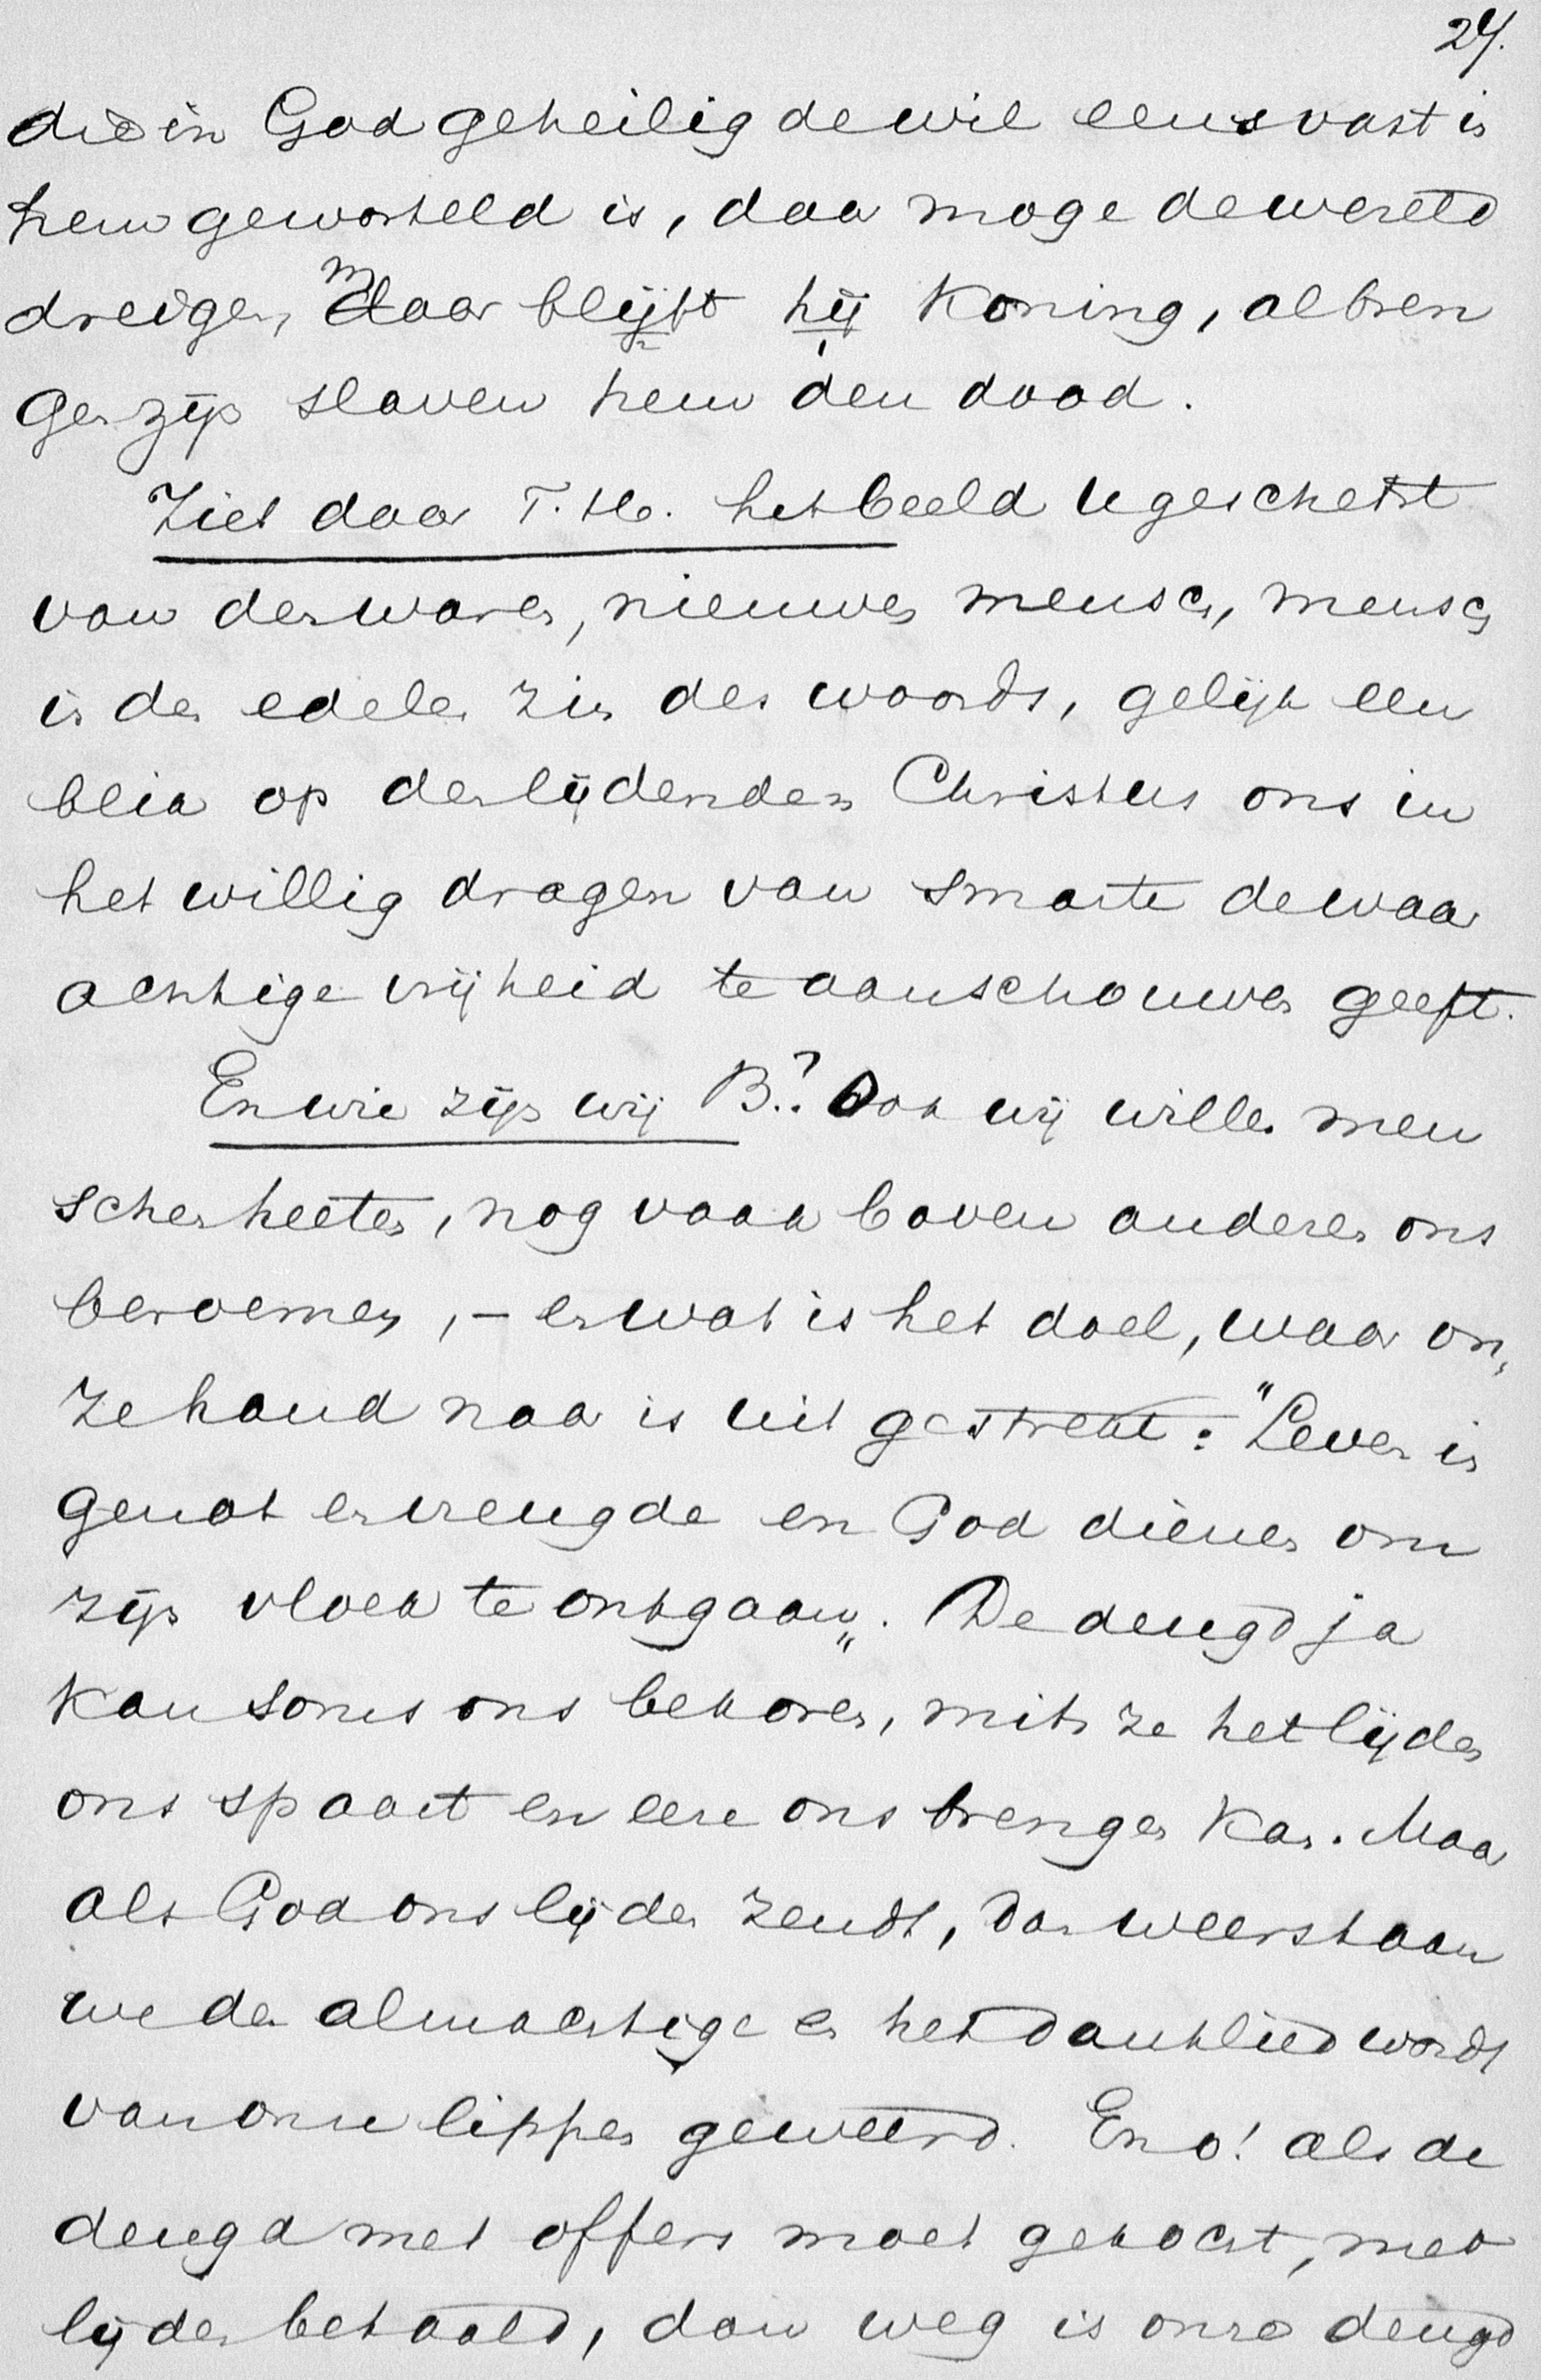 27.
die in God geheiligde wil eens vast in
hem geworteld is, daar moge de wereld
dreigen, maar blijft hij Koning, al bren
gen zijn slaven hem den dood.
Ziet daar T. H. het beeld u geschetst
van den waren, nieuwen mensch, mensch
in den edelen zin des woords, gelijk een
blik op den lijdenden Christus ons in
het willig dragen van smarte de waar
achtige vrijheid te aanschouwen geeft.
En wie zijn wij B.? Ook wij willen men
schen heeten, nog vaak boven anderen ons
beroemen, – en wat is het doel, waar on„
ze hand naar is uitgestrekt: "Leven is
genot en vreugde en God dienen om
zijn vloek te ontgaan„. De deugd ja
kan soms ons bekoren, mits ze het lijden
ons spaart en eere ons brengen kan. Maar
als God ons lijden zendt, dan weerstaan
we den almachtige en het danklied wordt
van onze lippen geweerd. En o! als de
deugd met offers moet gekocht, met
lijden betaald, dan weg is onze deugd